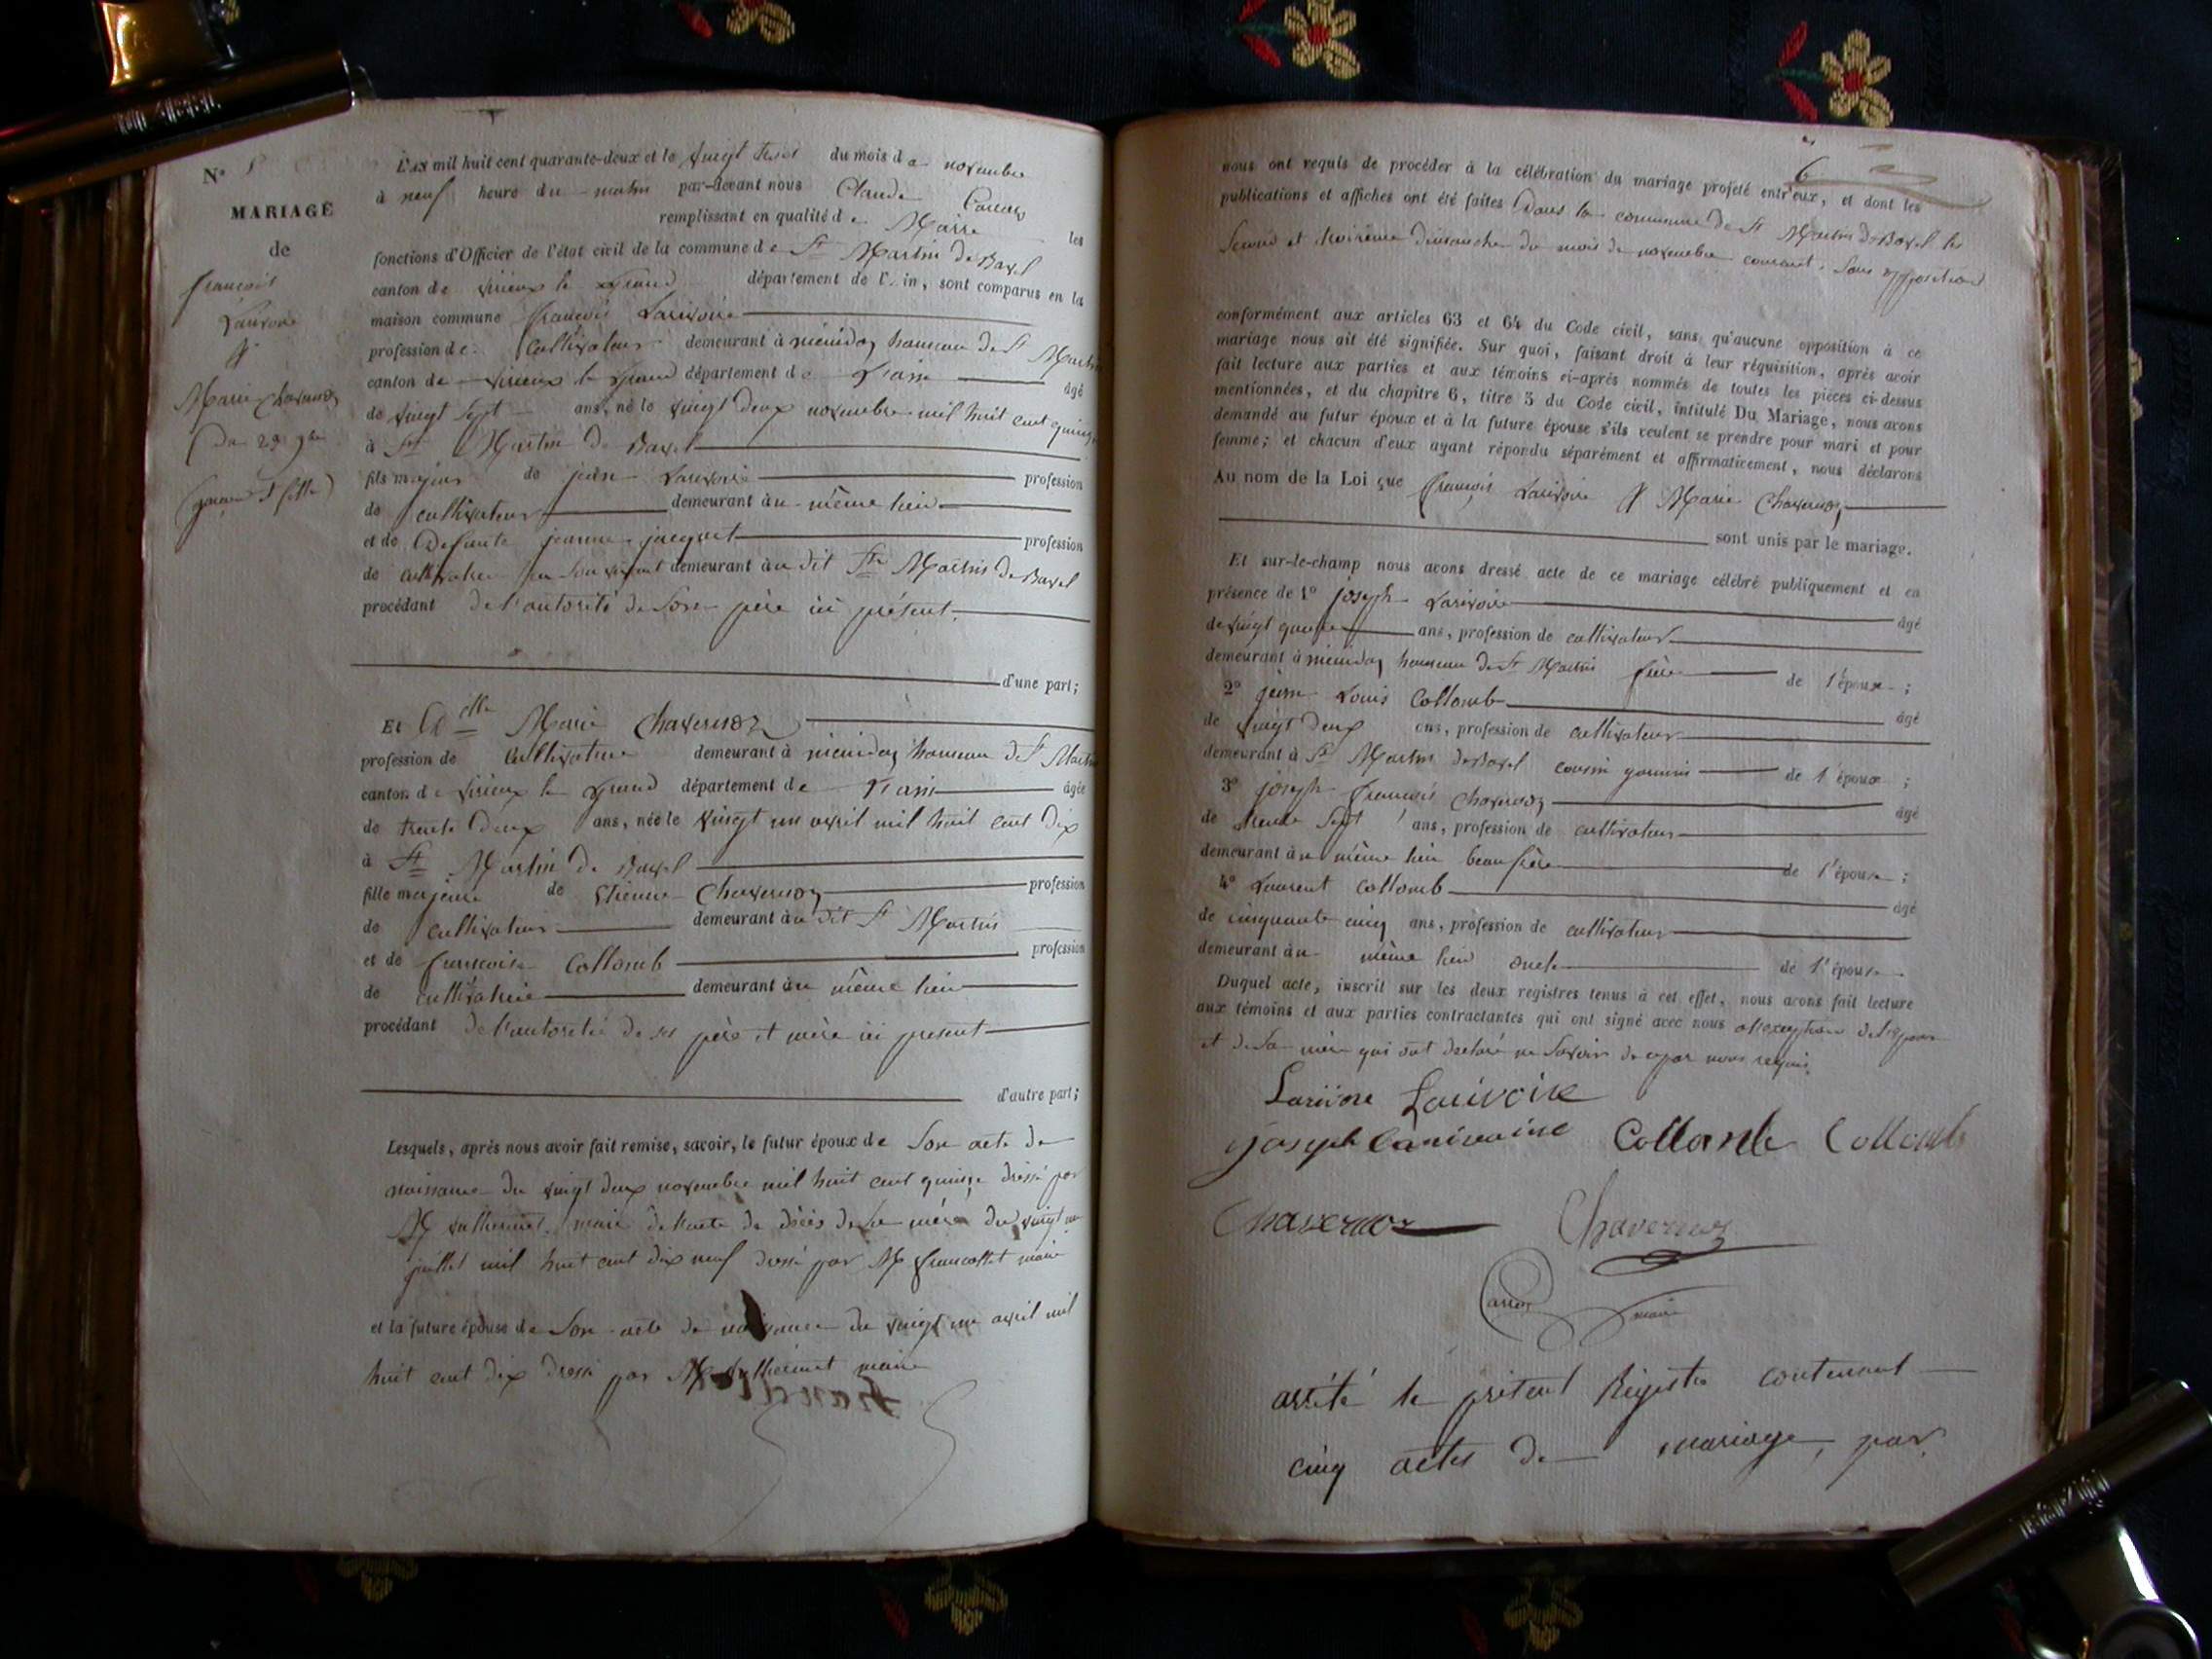 N° 5
MARIAGE
de
françois
Larivoire
&
Marie Chavernoz
(du 23 9bre
(garçon & fille)
L'AN mil huit cent quarante-deux et le vingt trois du mois de novembre
à neuf heure du matin par-devant nous Claude
remplissant en qualité de Maire les
fonctions d'Officier de l'état civil de la commune de St Martin de Bavel
canton de virieux le Grand département de l'Ain, sont comparus en la
maison commune françois Larivoire
profession de cultivateur demeurant à hameau de St Martin
canton de virieux le Grand département de L'ain âgé
de vingt sept ans, né le vingt deux novembre mil huit cent quinze
à St Martin de Bavel
fils majeur de jean Larivoire profession
de cultivateur demeurant au même lieu
et de Defunte jeanne jacquet profession
de cultivatrice en son vivant demeurant au dit St Martin de Bavel
procédant de l'autorité de Son père ici présent
d'une part;
Et Delle Marie Chavernoz
profession de cultivatrice demeurant à hameau de St Martin
canton de virieux le Grand département de l'ain âgée
de trente deux ans, née le vingt un avril mil huit cent dix
à St Martin de Bavel
fille majeure de Etienne Chavernoz profession
de cultivateur demeurant au dit St Martin
et de françoise Collomb profession
de cultivatrice demeurant au même lieu
procédant de l'autorité de ses père et mère ici present
d'autre part;
Lesquels, après nous avoir fait remise, savoir, le futur époux de Son acte de
naissance du vingt deux novembre mil huit cent quinze dressé par
M maire de l'acte de décès de sa mère du vingt un
juillet mil huit cent dix neuf dressé par M francottet maire
et la future épouse de Son acte de naissance du vingt un avril mil
huit cent dix dressé par M maire
6
nous ont requis de procéder à la célébration du mariage projeté entr'eux, et dont les
publications et affiches ont été faites Dans la commune de St Martin de Bavel les
Second et troisième dimanche du mois de novembre courant, Sans opposition
conformément aux articles 63 et 64 du Code civil, sans qu'aucune opposition à ce
mariage nous ait été signifiée. Sur quoi, faisant droit à leur réquisition, après avoir
fait lecture aux parties et aux témoins ci-après nommés de toutes les pièces ci-dessus
mentionnées, et du chapitre 6, titre 5 du Code civil, intitulé Du Mariage, nous avons
demandé au futur époux et à la future épouse s'ils veulent se prendre pour mari et pour
femme; et chacun d'eux ayant répondu séparément et affirmativement, nous déclarons
Au nom de la Loi que françois Larivoire & Marie Chavernoz
sont unis par le mariage.
Et sur-le-champ nous avons dressé acte de ce mariage célébré publiquement et en
présence de 1° joseph Larivoire âgé
de vingt quatre ans, profession de cultivateur
demeurant à hameau de St Martin frère de l'époux ;
2° jean Louis Collomb âgé
de vingt deux ans, profession de cultivateur
demeurant à St Martin de Bavel cousin germain de l'épouse ;
3° joseph françois Chavernoz âgé
de trente sept ans, profession de cultivateur
demeurant au même lieu beau frère de l'épouse ;
4° Laurent Collomb âgé
de cinquante cinq ans, profession de cultivateur
demeurant au même lieu oncle de l'épouse
Duquel acte, inscrit sur les deux registres tenus à cet effet, nous avons fait lecture
aux témoins et aux parties contractantes qui ont signé avec nous
et de Sa mère qui ont déclaré ne Savoir de ce par nous requis
Larivoire Larivoire
joseph Larivoire Collomb Collomb
Chavernoz Chavernoz
maire
arrêté le présent Registre contenant
cinq actes de mariage, par